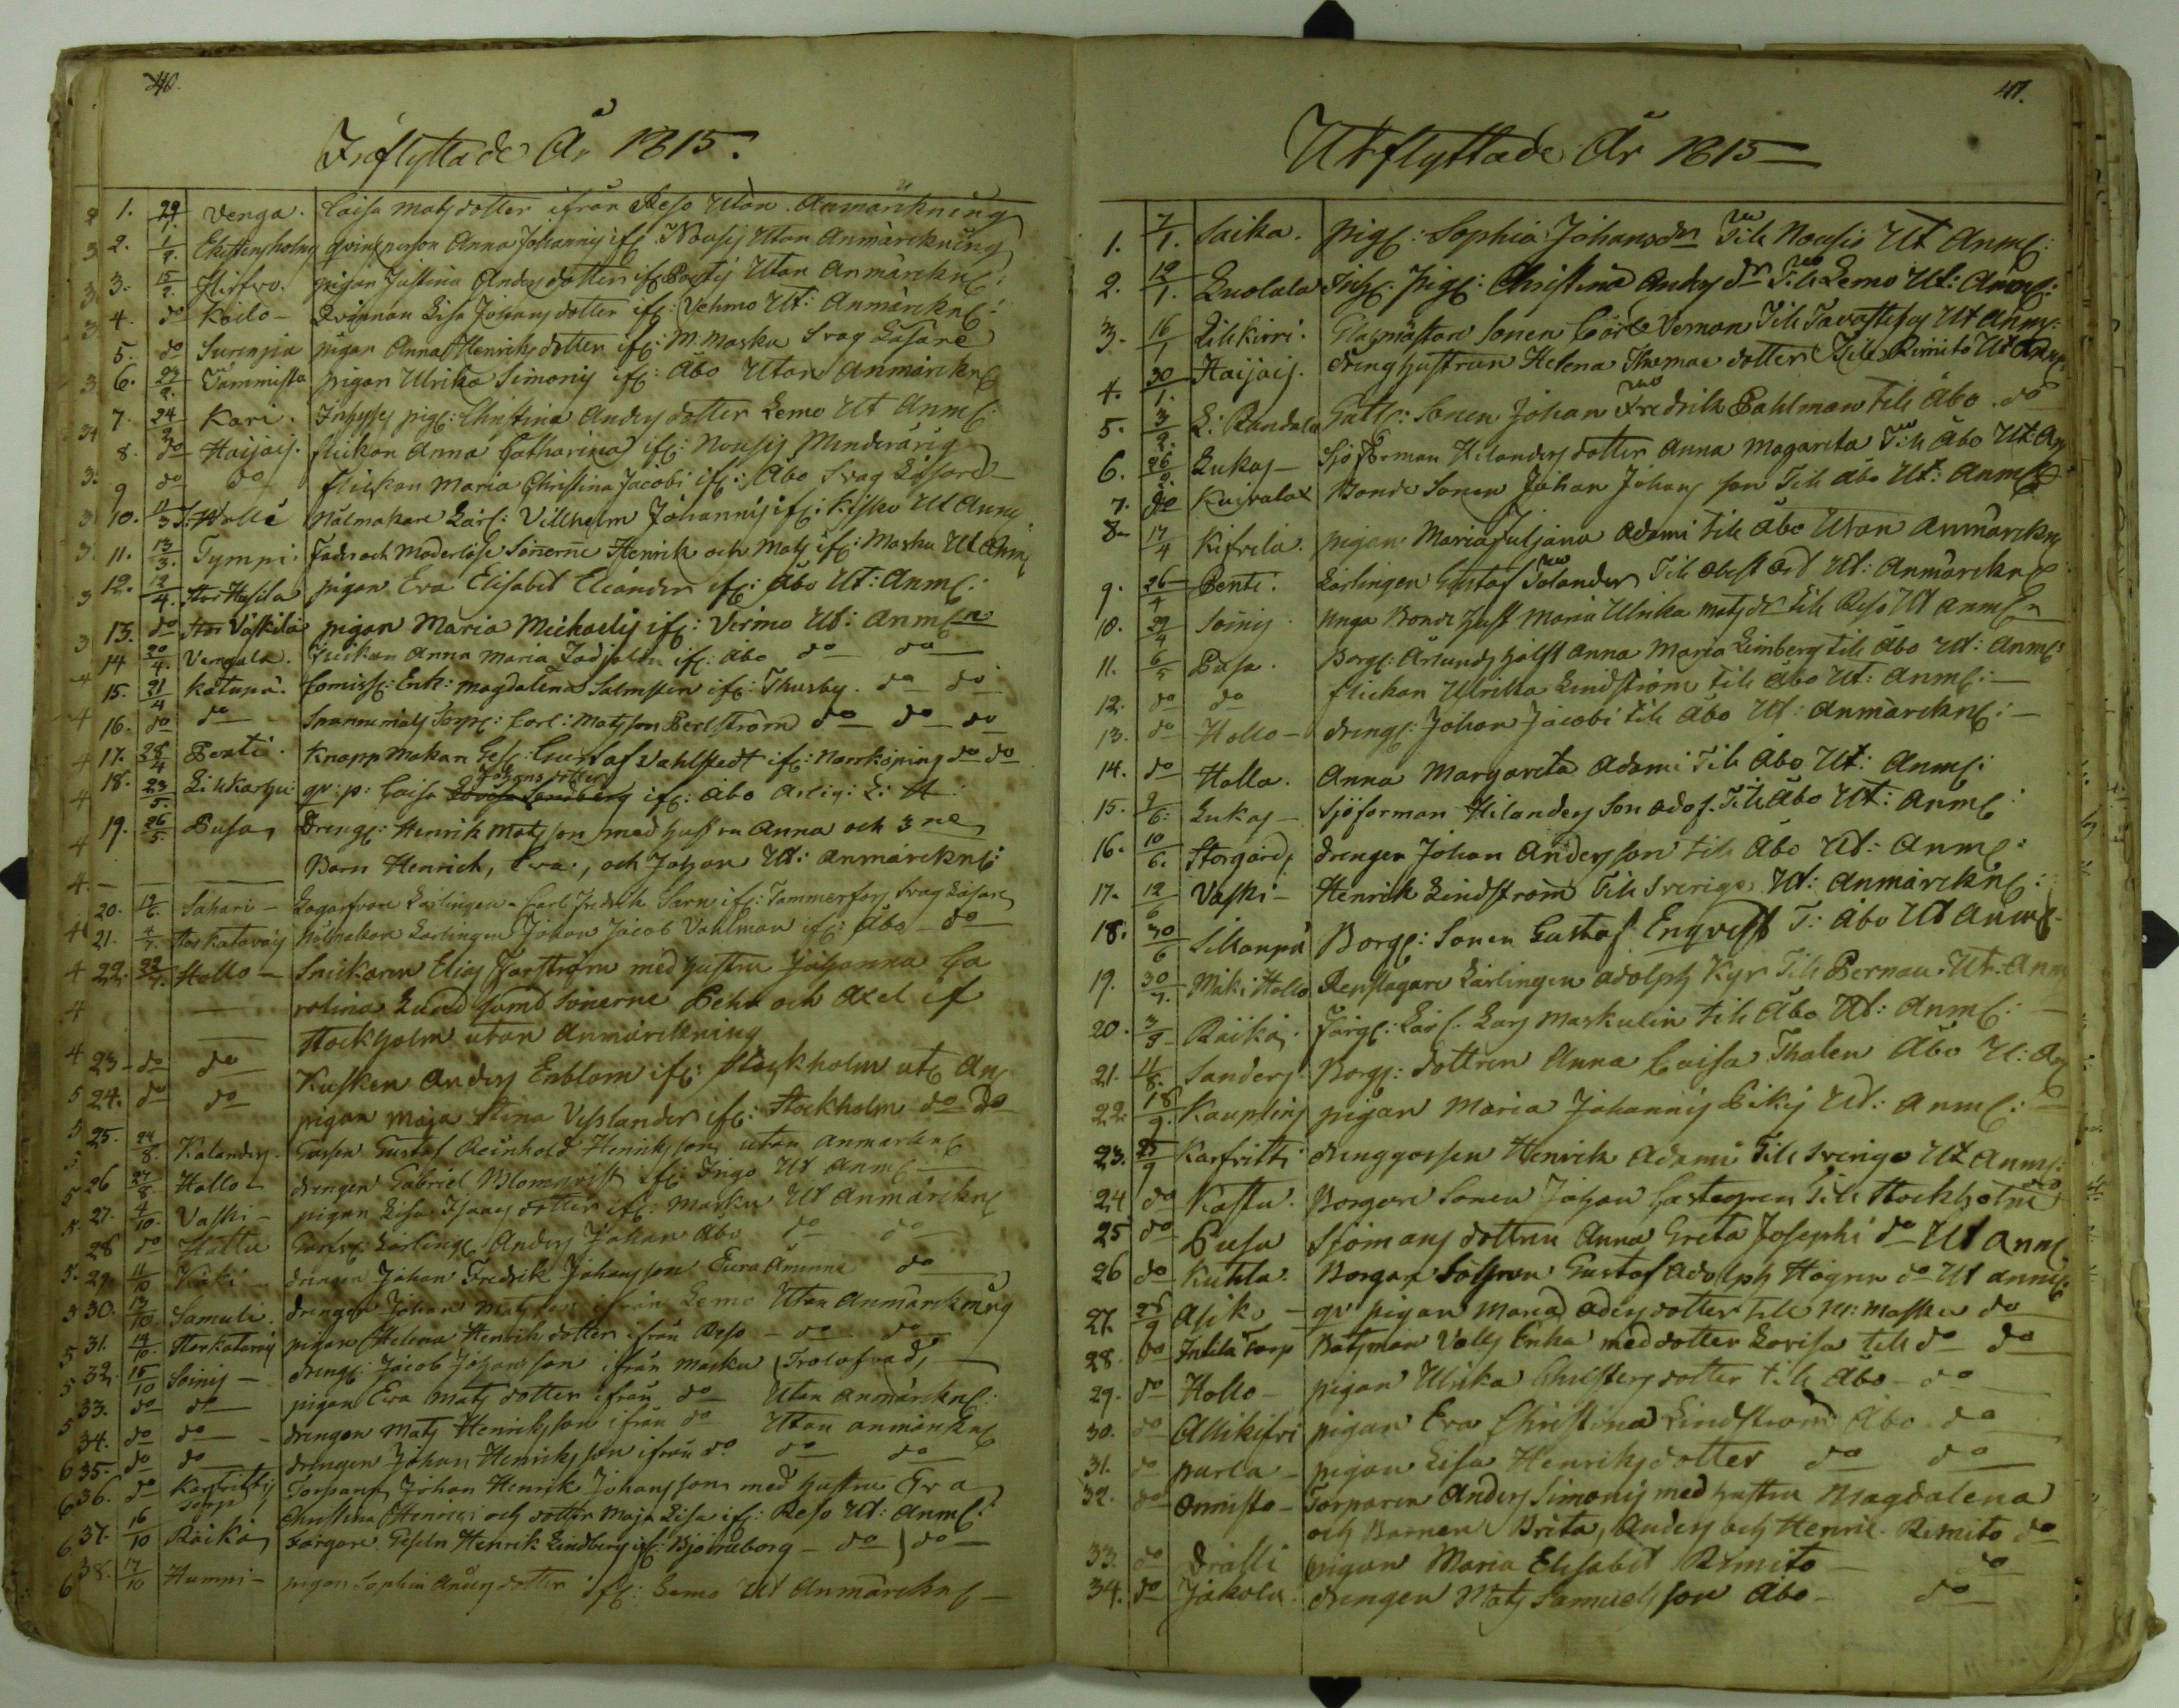 40.
Inflyttade År 1815.
1. 29/1. Venga. Caisa Mats dotter ifrån Reso Utan Anmärckning
2. 1/2. qvins person Anna Johannis if: Nousis Utan Anmärckning
3. 15/2. Hirfvo. pigan Justina Anders dotter if: Utan Anmärckn:
4. do Koilo - Qvinnan Lisa Johans dotter if: Vehmo Ut: Anmärckn:
5. do pigan Anna Henriks dotter if: M. Masku Svag Läsare
6. 23/2. Tammisto pigan Ulrika Simonis if: Åbo Utan Anmärckn
7. 24/2 Kari. Inhyses pig: Christina Anders dotter Lemo Ut Anm:
8. do Haijais. flickan Anna Catharina if: Nousis Minderårig
9 do do flickan Maria Christina Jacobi if: Åbo Svag Läsare -
10. 11/3 Nålmakare Lärl: Villhelm Johannis if: Kisko Ut Anm
11. 13/3. Tympi. Fader och Moderlöse Sönerne Henrik och Mats if: Masku Ut Anm
12. 12/4. Stor Hysila pigan Eva Elisabet Eleander if: Åbo Ut: Anm:
13. do Vaskila pigan Maria Michaelis if: Virmo Ut: Anm
14 20/4. Vengala. flickan Anna Maria if: Åbo do do
15. 21/4 Katupä. Comiss: Enk: Magdalena Salmstén if: Thusby. do do
16. do do Torp: Carl: Matsson Berlström do do do
17. 28/4 Penti. Knapp Makare Ges: Gustaf Vahlstedt if: Norrköping do do
18. 23/5. Li: Karhu: qv: p: Caisa Johans dotter if: Åbo
19. 26/5. Pusa, Dreng: Henrik Mats son med hustru Anna och 3 ne
Barn Henrich, Eva, och Johan Ut: Anmärckn:
20. 12/6. Sahari - Lärlingen Carl Fredrik if: Tammerfors Svag Läsare
21. 4/7. Stor Katavais Nålmakare Lärlingen Johan Jacob Vahlman if: Åbo - do
22. 22/7. Hollo - Snickaren Elias Forsström med hustru Johanna Ca
rolina Lund samt Sönerne Pehr och Axel if
Stockholm utan Anmärckning
23 - do do Kusken Anders Enblom if: Stockholm ut: An
24. do do pigan Maja Stina Vesslander if: Stockholm do do
25. 24/8. Kalanders. Gossen Gustaf Reinhold Henriksson utan Anmärckn
26 27/8 Hollo - drengen Gabriel Blomqvist if: Ingo Ut Anm -
27. 4/10. Vaski - pigan Lisa Isaacs dotter if: Masku Ut Anmärckn
28 do Hattu Lärling Anders Johan Åbo do do
29. 11/10 Käki - drengen Johan Fredrik Johansson Eura Åminne do
30. 12/10 Samuli. drengen Johan Matsson ifrån Lemo Utan Anmärckning
31. 14/10. Stor Katavais pigan Helena Henriks dotter ifrån Reso - do do
32. 15/10 Soinis - dreng: Jacob Johansson ifrån Masku (Trolofvad,
33. do do pigan Eva Mats dotter ifrån do Utan Anmärckn:
34. do do - drengen Mats Henriksson ifrån do Utan anmärckn
35. do do drengen Johan Henriksson ifrån do. do do
36. do Karfrittis Torp Torparen Johan Henrik Johansson med hustru Eva
Christina Henrici och dotter Maja Lisa if: Reso Ut: Anm:
37. 16/10 Räikä, Färgare Geseln Henrik Lindberg if: Björneborg - do) do -
38. 17/10 Humpi - pigan Sophia Anders dotter if: Lemo Ut Anmärckn -
41.
Utflyttade År 1815 -
1. 7/1. Saika. pig: Sophia Johansdr Till Nousis Ut Anm:
2. 12/1. Luolala Inh: pig: Christina Anders dr Till Lemo Ut: Anm:
3. 16/1 Lillkirri. Glasmästare Sonen Carl Verman Till Tavastehus Ut Anm:
4. 30/1. Haijais. drenghustrun Helena Thomae dotter Till Rimito Ut Anm:
5. 3/2. L: Randala Sonen Johan Fredrik Pahlman till Åbo. do
6. 26/2. Lukas - Sjö Förman Hilanders dotter Anna Magareta Till Åbo Ut: An
7. do Kaivalax Bonde Sonen Johan Johans son Till Åbo Ut: Anm
8 - 17/4 Kifvila. pigan Maria Juljana Adami till Åbo Utan Anmärckn
9. 26/4 Penti. Lärlingen Gustaf Solander Till Ut: Anmärckn
10. 29/4 Soinis unga Bonde hust Maria Ulrika Mats dr till Reso Ut Anm
11. 6/5 Pusa. Borg: Anna Maria Limberg till Åbo Ut: Anm:
12. do do flickan Ulrika Lindström till Åbo Ut: Anm: -
13. do Hollo - dreng: Johan Jacobi till Åbo Ut: Anmärckn: -
14. do Holla. Anna Margareta Adami Till Åbo Ut: Anm:
15. 9/6: Lukas - Sjöforman Hilanders Son Till Åbo Ut: Anm:
16. 10/6. Storgård, drengen Johan Andersson till Åbo Ut: Anm:
17. 12/6 Vaski - Henrik Lindström Till Sverige Ut: Anmärckn:
18. 30/6 Sikanpä Borg: Sonen Gustaf Enqvist T: Åbo Ut Anm
19. 30/7. Mäki Hollo Repslagare Lärlingen Adolph Kyr Till Pernau. Ut. Anm
20. 3/8 Räikä. Färg: Lärl. Lars Maskulin till Åbo Ut: Anm: -
21. 11/8. Sanders. Borg: dottren Anna Caisa Thalen Åbo U: An
22. 18/9. Kauppins pigan Maria Johannis Pikis Ut: Anm: -
23. 25/9 Karfritti drenggossen Henrik Adami Till Sverige Ut Anm:
24. do Kastu. Borgare Sonen Johan Castegren Till Stockholm
25 do Pusa Sjömans dottren Anna Greta Josephi do Ut Anm.
26 do Kuhla. Borgar Gustaf Adolph Högren do Ut anm
27. 28/9 Asik - qv pigan Maria Anders dotter till M: Masku do
28. do Inkilä Torp Båtsman Valls Enka med dotter Lovisa till do do
29. do Hollo - pigan Ulrika Christers dotter till Åbo - do
30. do Allikifri pigan Eva Christina Lindström Åbo do
31. do Purla - pigan Lisa Henriks dotter do do
32. do Onnisto - Torparen Anders Simonis med hustru Magdalena
och Barnen Brita, Anders och Henric. Rimito do
33. do Drälli pigan Maria Elisabet Rimito - do
34. do Jakola drengen Mats Samuelsson Åbo - do